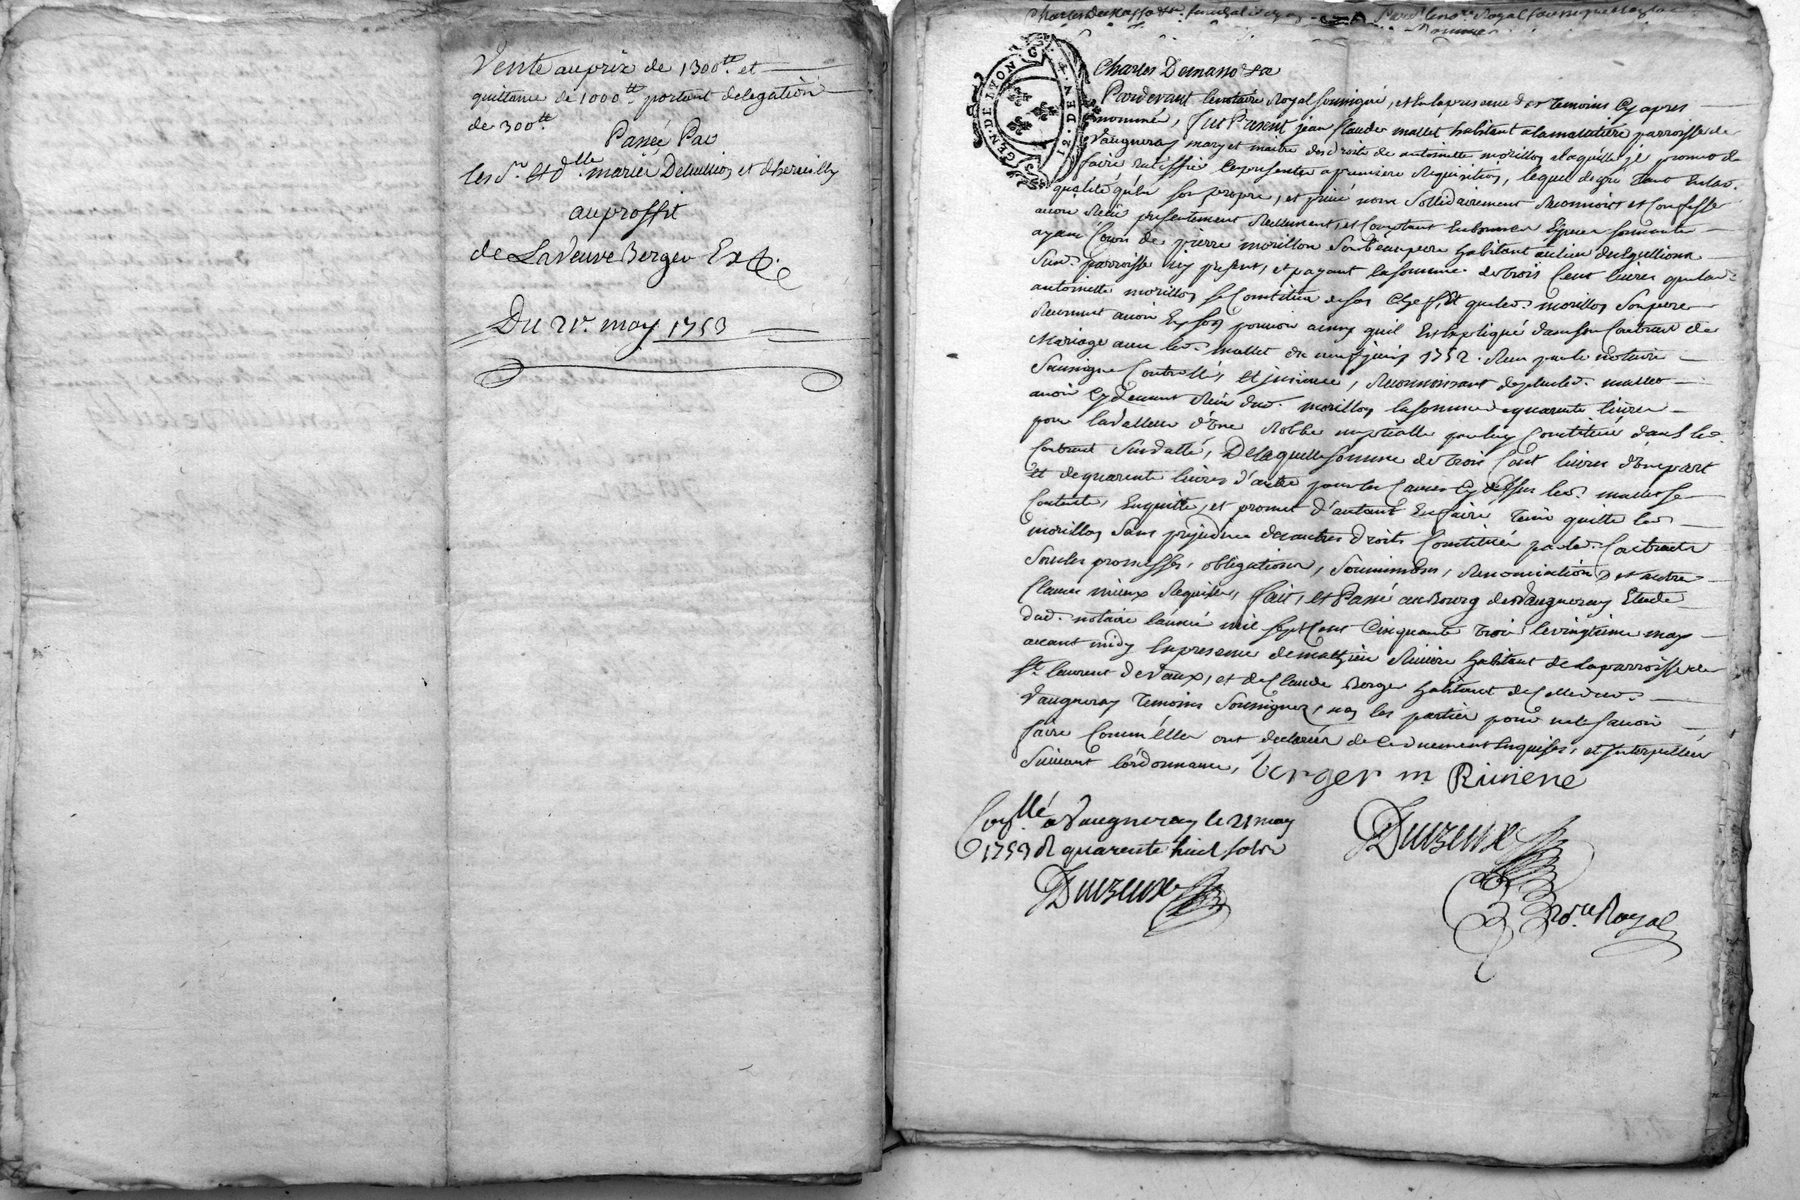 Vente au prix de 1300ᵗᵗ et
quittance de 1000ᵗᵗ portant delegation
de 300ᵗᵗ
Passée Par
les Sr. et dlle mariés
au proffit
de La Veuve Berger
Du 21e. may 1753
GEN. DE LYON
Pardevant le notaire Royal soussigné, et en la presence des temoins cy apres
nommé, fut Present jean Claude mallet habitant a la maladiere parroisse de
Vaugneray mary et maitre des droits de antoinette morillon a laquelle il promet de
faire ratiffier les presentes a premiere requisition, lequel de gré tant en lad.
qualité qu'en son propre, et privé nom sollidairement reconnoit et confesse
avoir receu presentement reellement, et comptant en bonnes especes sonnantes
ayant cours de pierre morillon son beaupere habitant au lieu
parroisse icy present, et payant la somme de trois cent livres que lad.
antoinette morillon se constitue de son chef, et que led. morillon son pere
reconnut avoir en son pouvoir ainsy qu'il est expliqué dans son Contract de
Mariage avec led. mallet du neuf juin 1752. receu par le notaire
soussigné Controllé, et insinué, reconnoissant de plus led. mallet
avoir cy devant receu dud. morillon la somme de quarente livres
pour la valleur d'une Robbe nuptialle par luy constitué dans le
Contract susdatté, De laquelle somme de trois cent livres d'une part
et de quarente livres d'autre pour les causes cy dessus led. mallet se
contente, en quitte, et promet d'autant en faire tenir quitte led.
morillon sans prejudice des autres droits constitués par led. Contract
sous les promesses, obligations, soumissions, renonciations et autres
clauses mieux requises, fait, et Passé au Bourg de Vaugneray Etude
dud. notaire l'année mil sept cent cinquante trois le vingtieme may
avant midy en presence de mathieu Riviere habitant de la parroisse de
St. laurent de Vaux, et de Claude Berger habitant de celle dud.
Vaugneray temoins soussignez, non les parties pour ne le savoir
faire comm'elles ont declarées de ce duement enquises, et interpellées
suivant l'ordonnance,
Berger m Riviere
Conllé a Vaugneray le 21 may
1753 R quarente huit sols
Nore. Royal